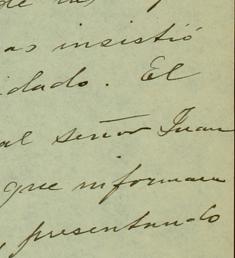 as insistió
idado. El
al señor Juan
que informara
presentando